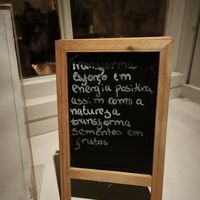 Transforma
esforço em
energia positiva,
assim como a
natureza
transforma
sementes em
frutos